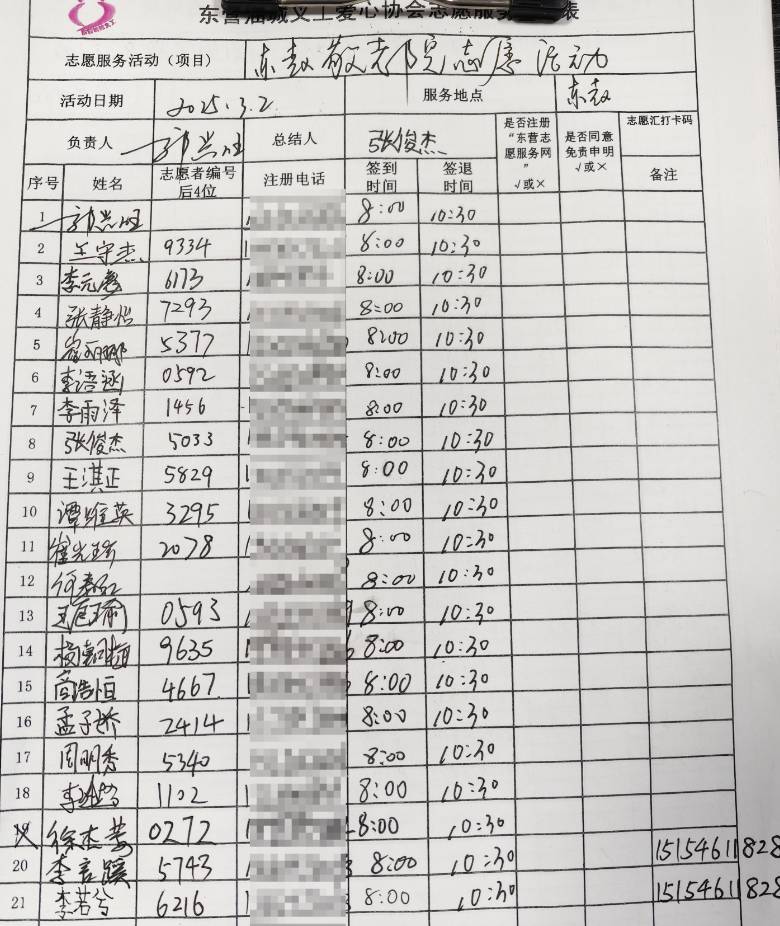 东营油城义工爱心协会志愿服务 表
志愿服务活动（项目） 东赵敬老院志愿活动
活动日期 2025.3.2 服务地点 东赵
负责人 总结人 张俊杰 是否注册“东营志愿服务网” √或× 是否同意免责申明 √或× 志愿汇打卡码
序号 姓名 志愿者编号后4位 注册电话 签到时间 签退时间 备注
1 8:00 10:30
2 王守杰 9334 8:00 10:30
3 李元彪 6173 8:00 10:30
4 张静怡 7293 8:00 10:30
5 5377 8:00 10:30
6 李语涵 0592 8:00 10:30
7 李雨泽 1456 8:00 10:30
8 张俊杰 5033 8:00 10:30
9 王淇正 5829 8:00 10:30
10 谭维英 3295 8:00 10:30
11 2078 8:00 10:30
12 8:00 10:30
13 0593 8:00 10:30
14 9635 8:00 10:30
15 高浩恒 4667 8:00 10:30
16 孟子乔 2414 8:00 10:30
17 周明秀 5340 8:00 10:30
18 1102 8:00 10:30
19 徐杰 0272 8:00 10:30
20 李言蹊 5743 8:00 10:30 15154611828
21 李若兮 6216 8:00 10:30 15154611828